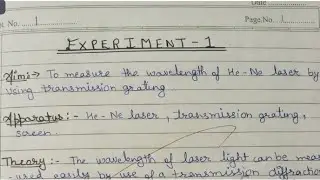 Date
No.
Page No. 1
EXPERIMENT - 1
Aim:→ To measure the wavelength of He-Ne laser by
using transmission grating.
Apparatus:- He-Ne laser, transmission grating,
screen.
Theory:- The wavelength of laser light can be meas
used easily by use of a transmission diffraction